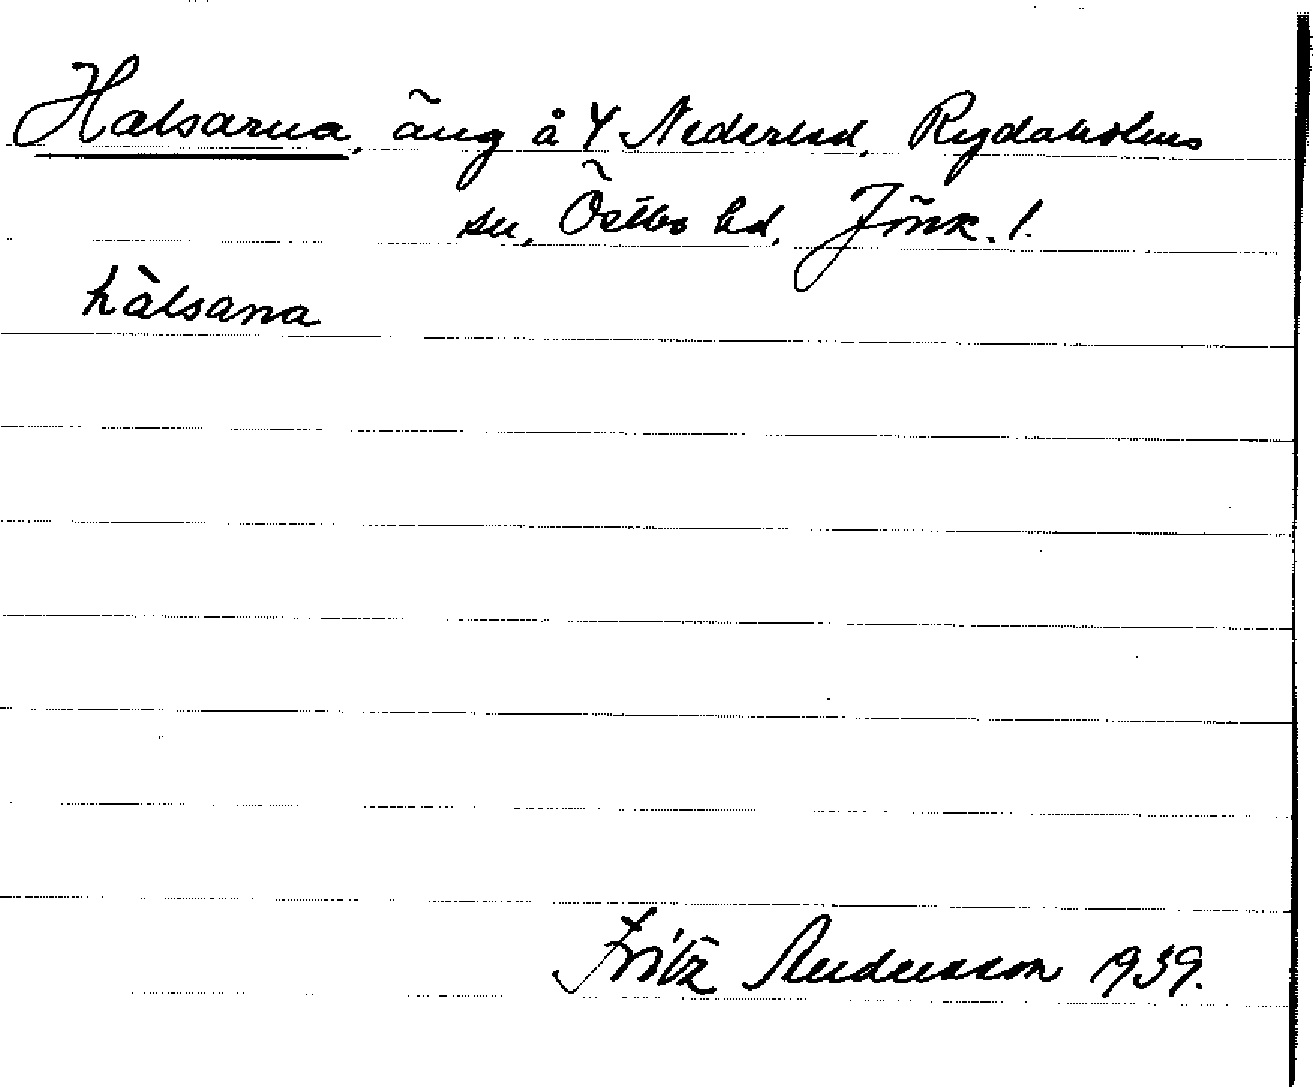 Halsarna, äng å Y Nederled, Rydaholms
sn, Östbo hd, Jönk. l.
hàlsana
Fritz Andersson 1939.